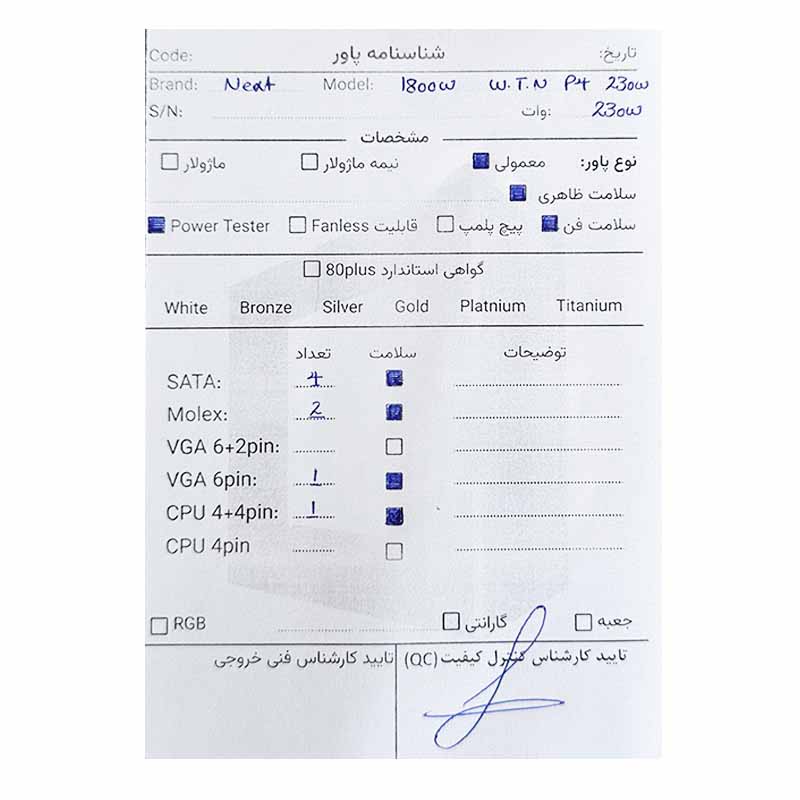 Code: شناسنامه پاور تاریخ:
Brand: Next Model: 1800w W.T.N P4 230w
S/N: وات: 230w
مشخصات
نوع پاور: معمولی نیمه ماژولار ماژولار
سلامت ظاهری
سلامت فن پیچ پلمپ قابلیت Fanless Power Tester
گواهی استاندارد 80plus
White Bronze Silver Gold Platnium Titanium
تعداد سلامت توضیحات
SATA: 4
Molex: 2
VGA 6+2pin:
VGA 6pin: 1
CPU 4+4pin: 1
CPU 4pin
RGB گارانتی جعبه
تایید کارشناس کنترل کیفیت (QC) تایید کارشناس فنی خروجی